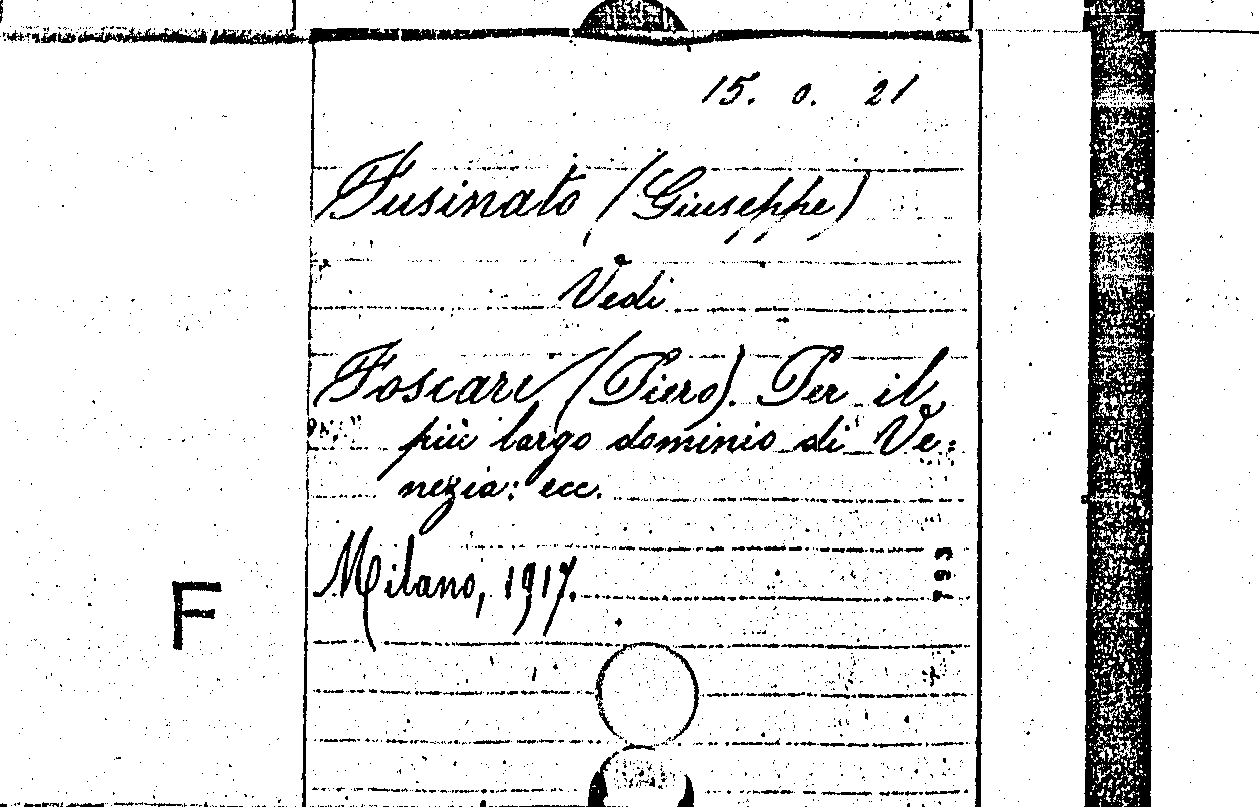 15. o. 21
Fusinato (Giuseppe)
Vedi
Foscari (Piero). Per il
più largo dominio di Ve=
nezia: ecc.
Milano, 1917.
F